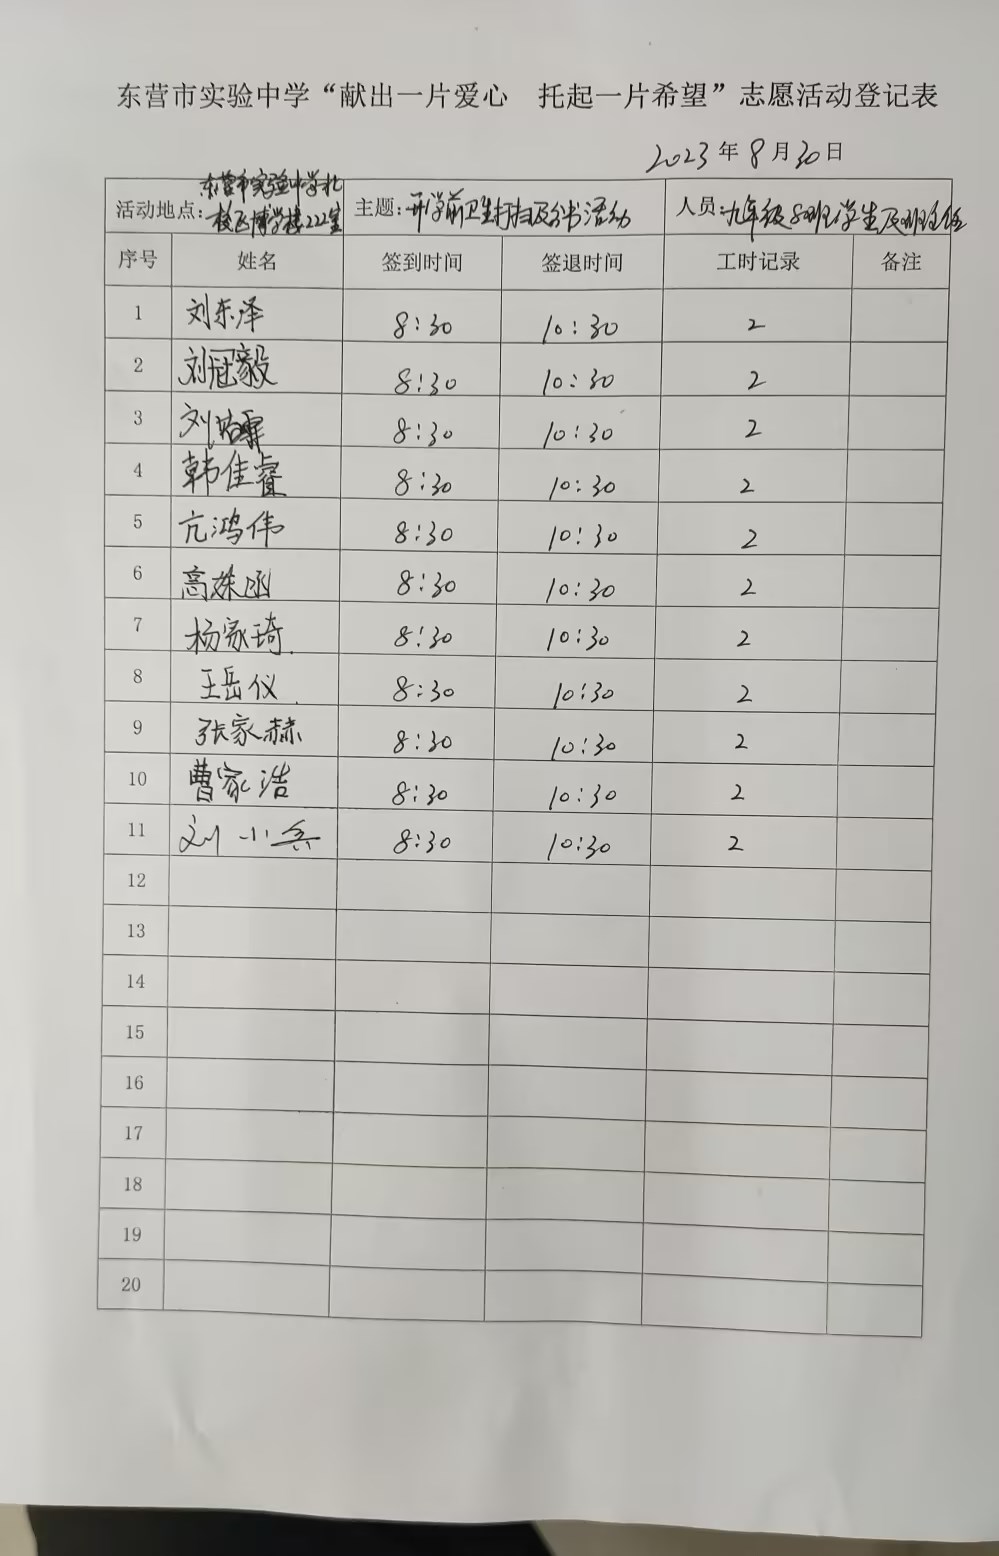 东营市实验中学“献出一片爱心 托起一片希望”志愿活动登记表
2023年8月30日
活动地点:东营市实验中学北校区博学楼222室 主题:开学前卫生打扫及分书活动 人员:九年级8班学生及班主任
序号 姓名 签到时间 签退时间 工时记录 备注
1 刘东泽 8:30 10:30 2
2 刘冠毅 8:30 10:30 2
3 刘 8:30 10:30 2
4 韩佳睿 8:30 10:30 2
5 亢鸿伟 8:30 10:30 2
6 高姝函 8:30 10:30 2
7 杨家琦 8:30 10:30 2
8 王岳仪 8:30 10:30 2
9 张家赫 8:30 10:30 2
10 曹家浩 8:30 10:30 2
11 刘小兵 8:30 10:30 2
12
13
14
15
16
17
18
19
20